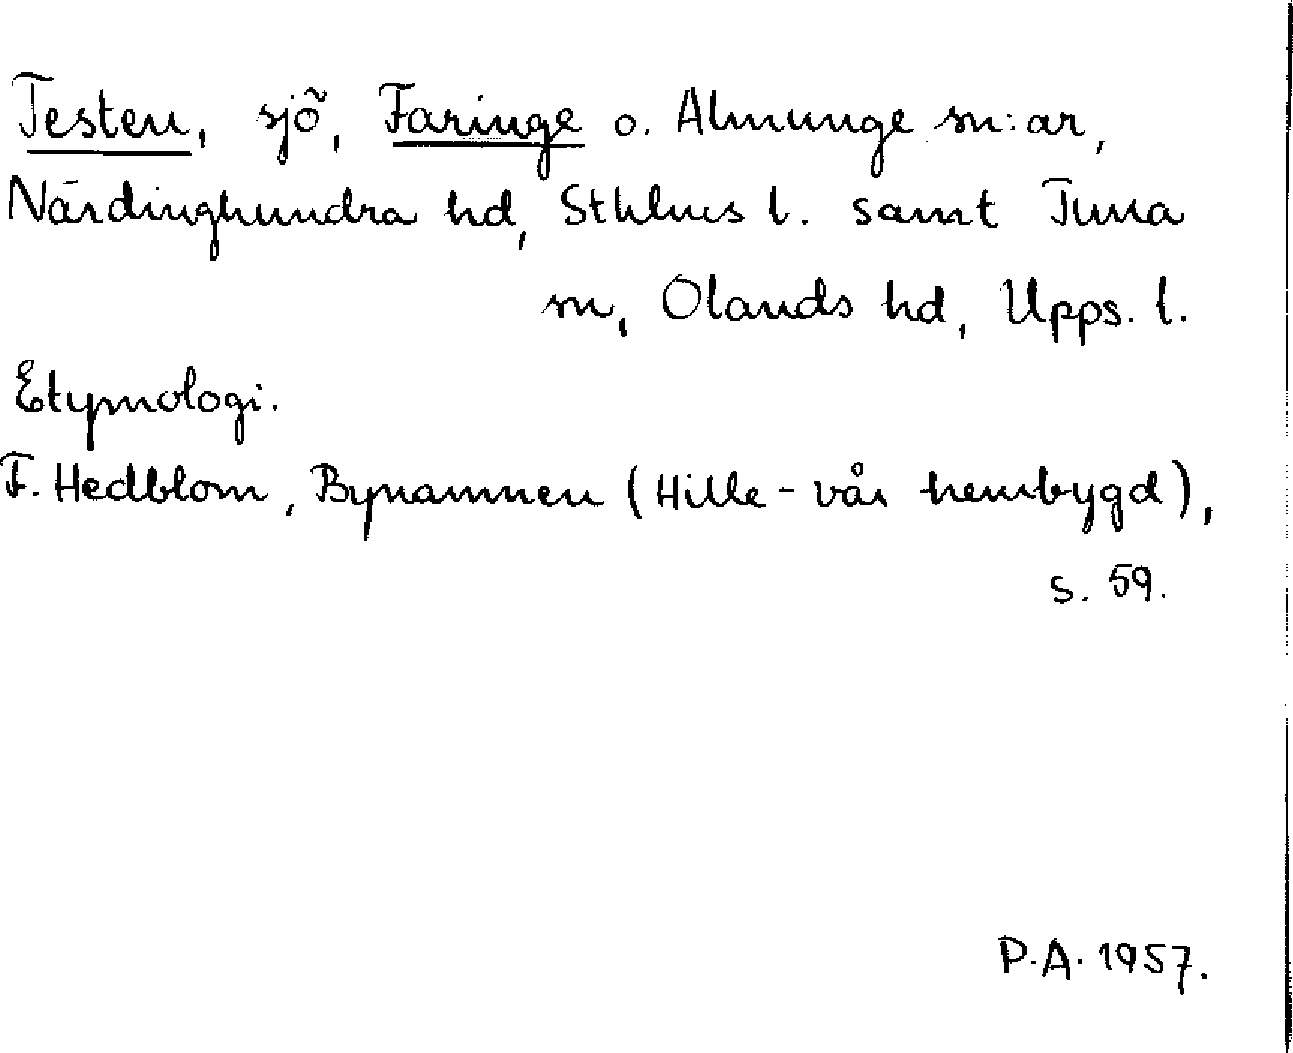 Testen, sjö, Faringe o. Almunge sn:ar,
Närdinghundra hd, Sthlms l. samt Tuna
sn, Olands hd, Upps. l.
Etymologi.
F. Hedblom, Bynamnen (Hille - vår hembygd),
s. 59.
P.A. 1957.